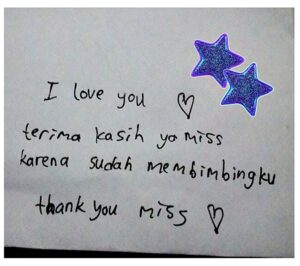 I love you ♡
terima kasih ya miss
karena sudah membimbingku
thank you miss ♡